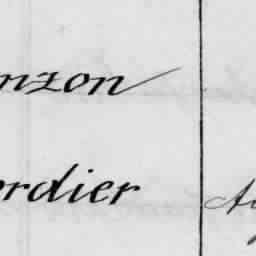 nzon
ordier